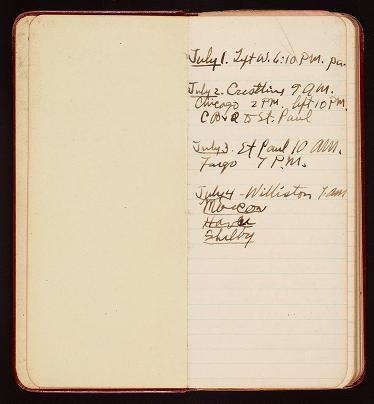 July 1. Left W. 6:10 P.M. pa.
July 2. Crestline 9 a.m.
Chicago 2 PM. left 10 PM.
C B & Q to St. Paul
July 3. St Paul 10 AM.
Fargo 7 P.M.
July 4 - Williston 7 am
Macon
Havre
Shelby